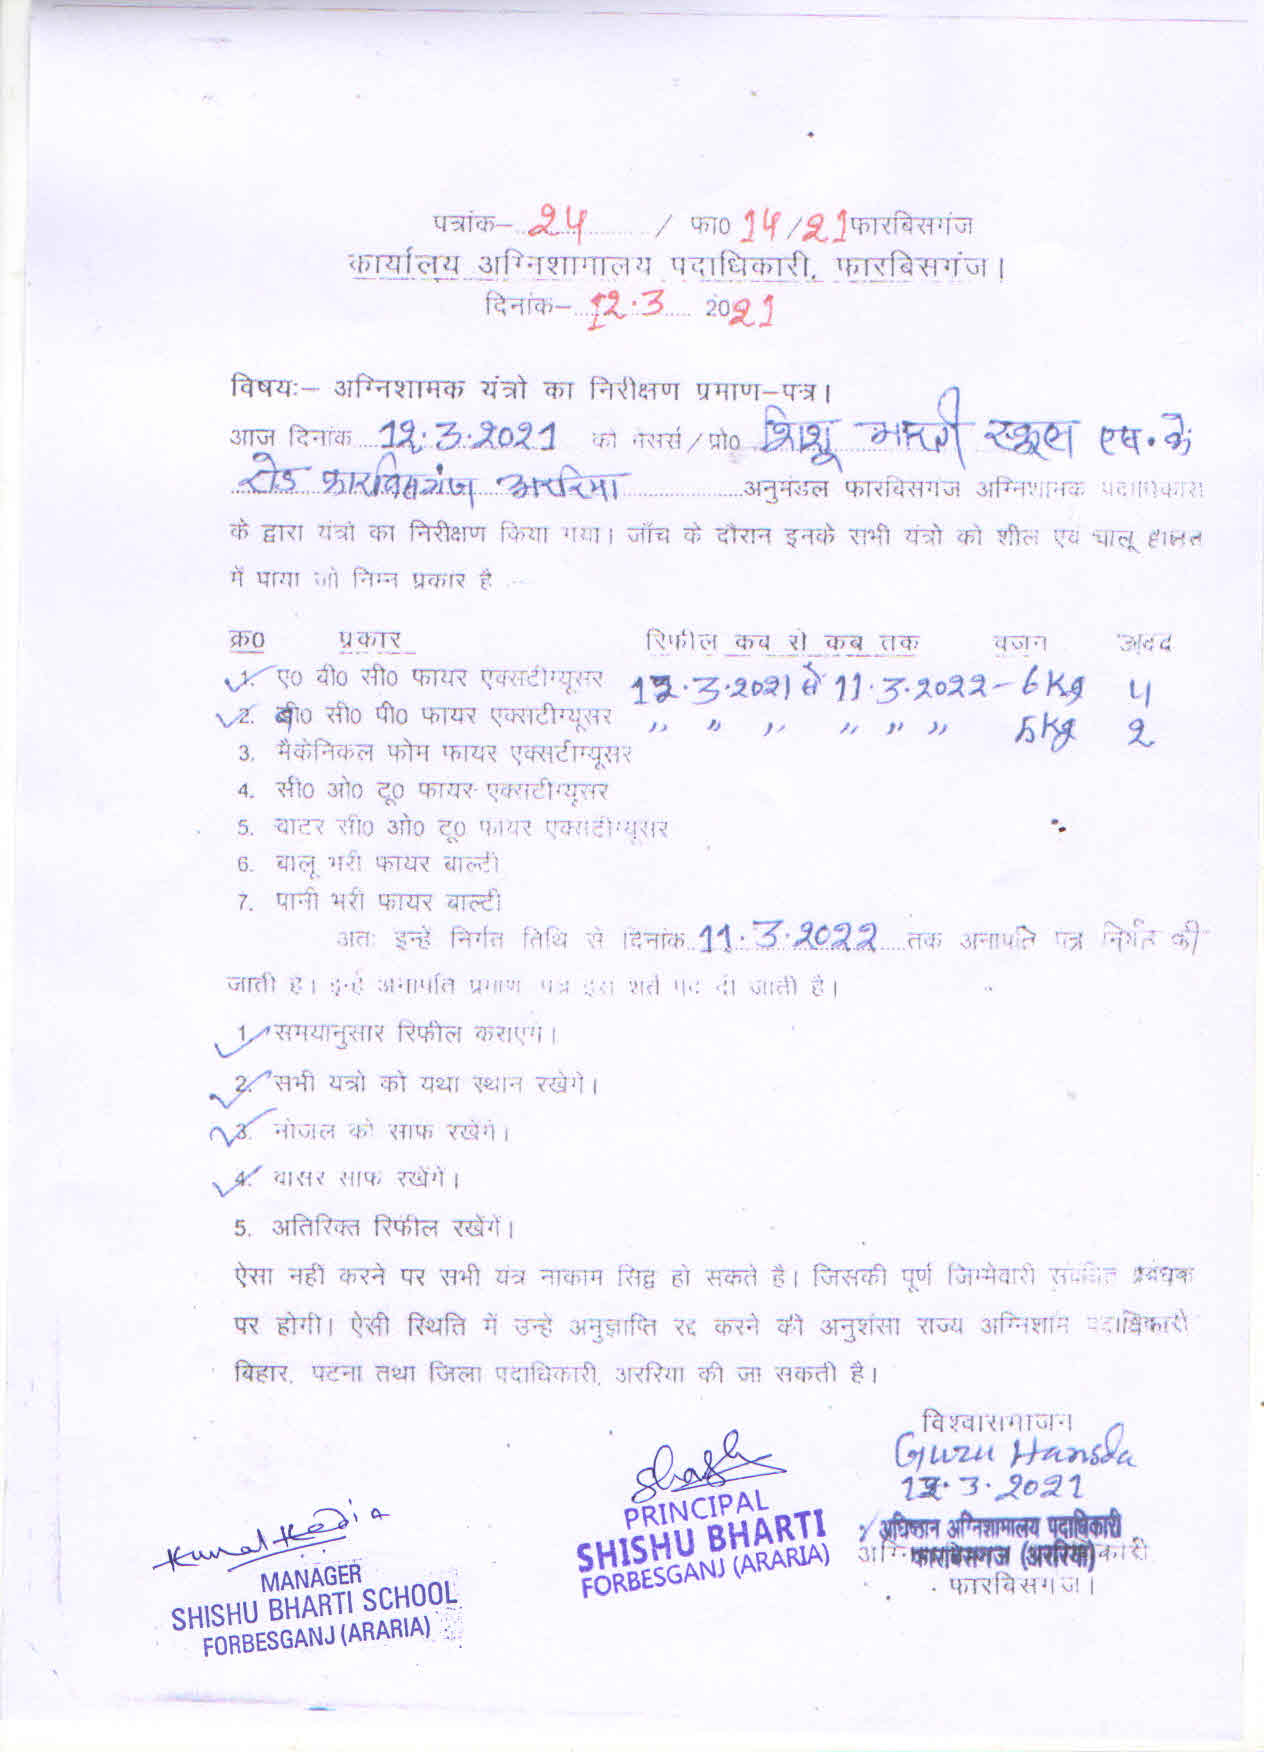 पत्रांक- 24 / फा0 14/21 फारबिसगंज
कार्यालय अग्निशामालय पदाधिकारी, फारबिसगंज।
दिनांक- 12.3 2021
विषयः- अग्निशामक यंत्रो का निरीक्षण प्रमाण-पत्र।
आज दिनांक 12.3.2021 को मेसर्स / प्रो0 शिशु भारती स्कूल एस.के
रोड फारबिसगंज अररिया अनुमंडल फारबिसगंज अग्निशामक पदाधिकारी
के द्वारा यंत्रो का निरीक्षण किया गया। जाँच के दौरान इनके सभी यंत्रो को शील एवं चालू हालत
में पाया जो निम्न प्रकार है :-
क्र0 प्रकार रिफील कब से कब तक वजन अदद
1. ए0 वी0 सी0 फायर एक्सटीग्यूसर 12.3.2021 से 11.3.2022 - 6 Kg 4
2. बी0 सी0 पी0 फायर एक्सटीग्यूसर ,, ,, ,, ,, ,, ,, 5 Kg 2
3. मैकेनिकल फोम फायर एक्सटीग्यूसर
4. सी0 ओ0 टू0 फायर एक्सटीग्यूसर
5. वाटर सी0 ओ0 टू0 फायर एक्सटीग्यूसर
6. बालू भरी फायर बाल्टी
7. पानी भरी फायर बाल्टी
अतः इन्हें निर्गत तिथि से दिनांक 11.3.2022 तक अनापति पत्र निर्गत की
जाती है। इन्हे अनापति प्रमाण पत्र इस शर्त पर दी जाती है।
1. समयानुसार रिफील कराएगें।
2. सभी यत्रो को यथा स्थान रखेगे।
3. नोजल को साफ रखेंगे।
4. वासर साफ रखेंगें।
5. अतिरिक्त रिफील रखेंगें।
ऐसा नहीं करने पर सभी यंत्र नाकाम सिद्व हो सकते है। जिसकी पूर्ण जिम्मेवारी संबंधित प्रबंधक
पर होगी। ऐसी स्थिति में उन्हे अनुज्ञाप्ति रद्द करने की अनुशंसा राज्य अग्निशाम पदाधिकारी
बिहार, पटना तथा जिला पदाधिकारी, अररिया की जा सकती है।
विश्वासभाजन
Guru Hansda
12.3.2021
अधिष्ठान अग्निशामालय पदाधिकारी
फारबिसगंज (अररिया)
फारबिसगंज।
Shagh
PRINCIPAL
SHISHU BHARTI
FORBESGANJ (ARARIA)
Kunal Kedia
MANAGER
SHISHU BHARTI SCHOOL
FORBESGANJ (ARARIA)